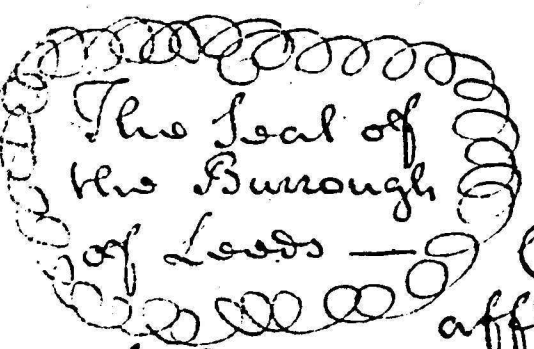 The Seal of
the Burrough
of Leeds —
aff